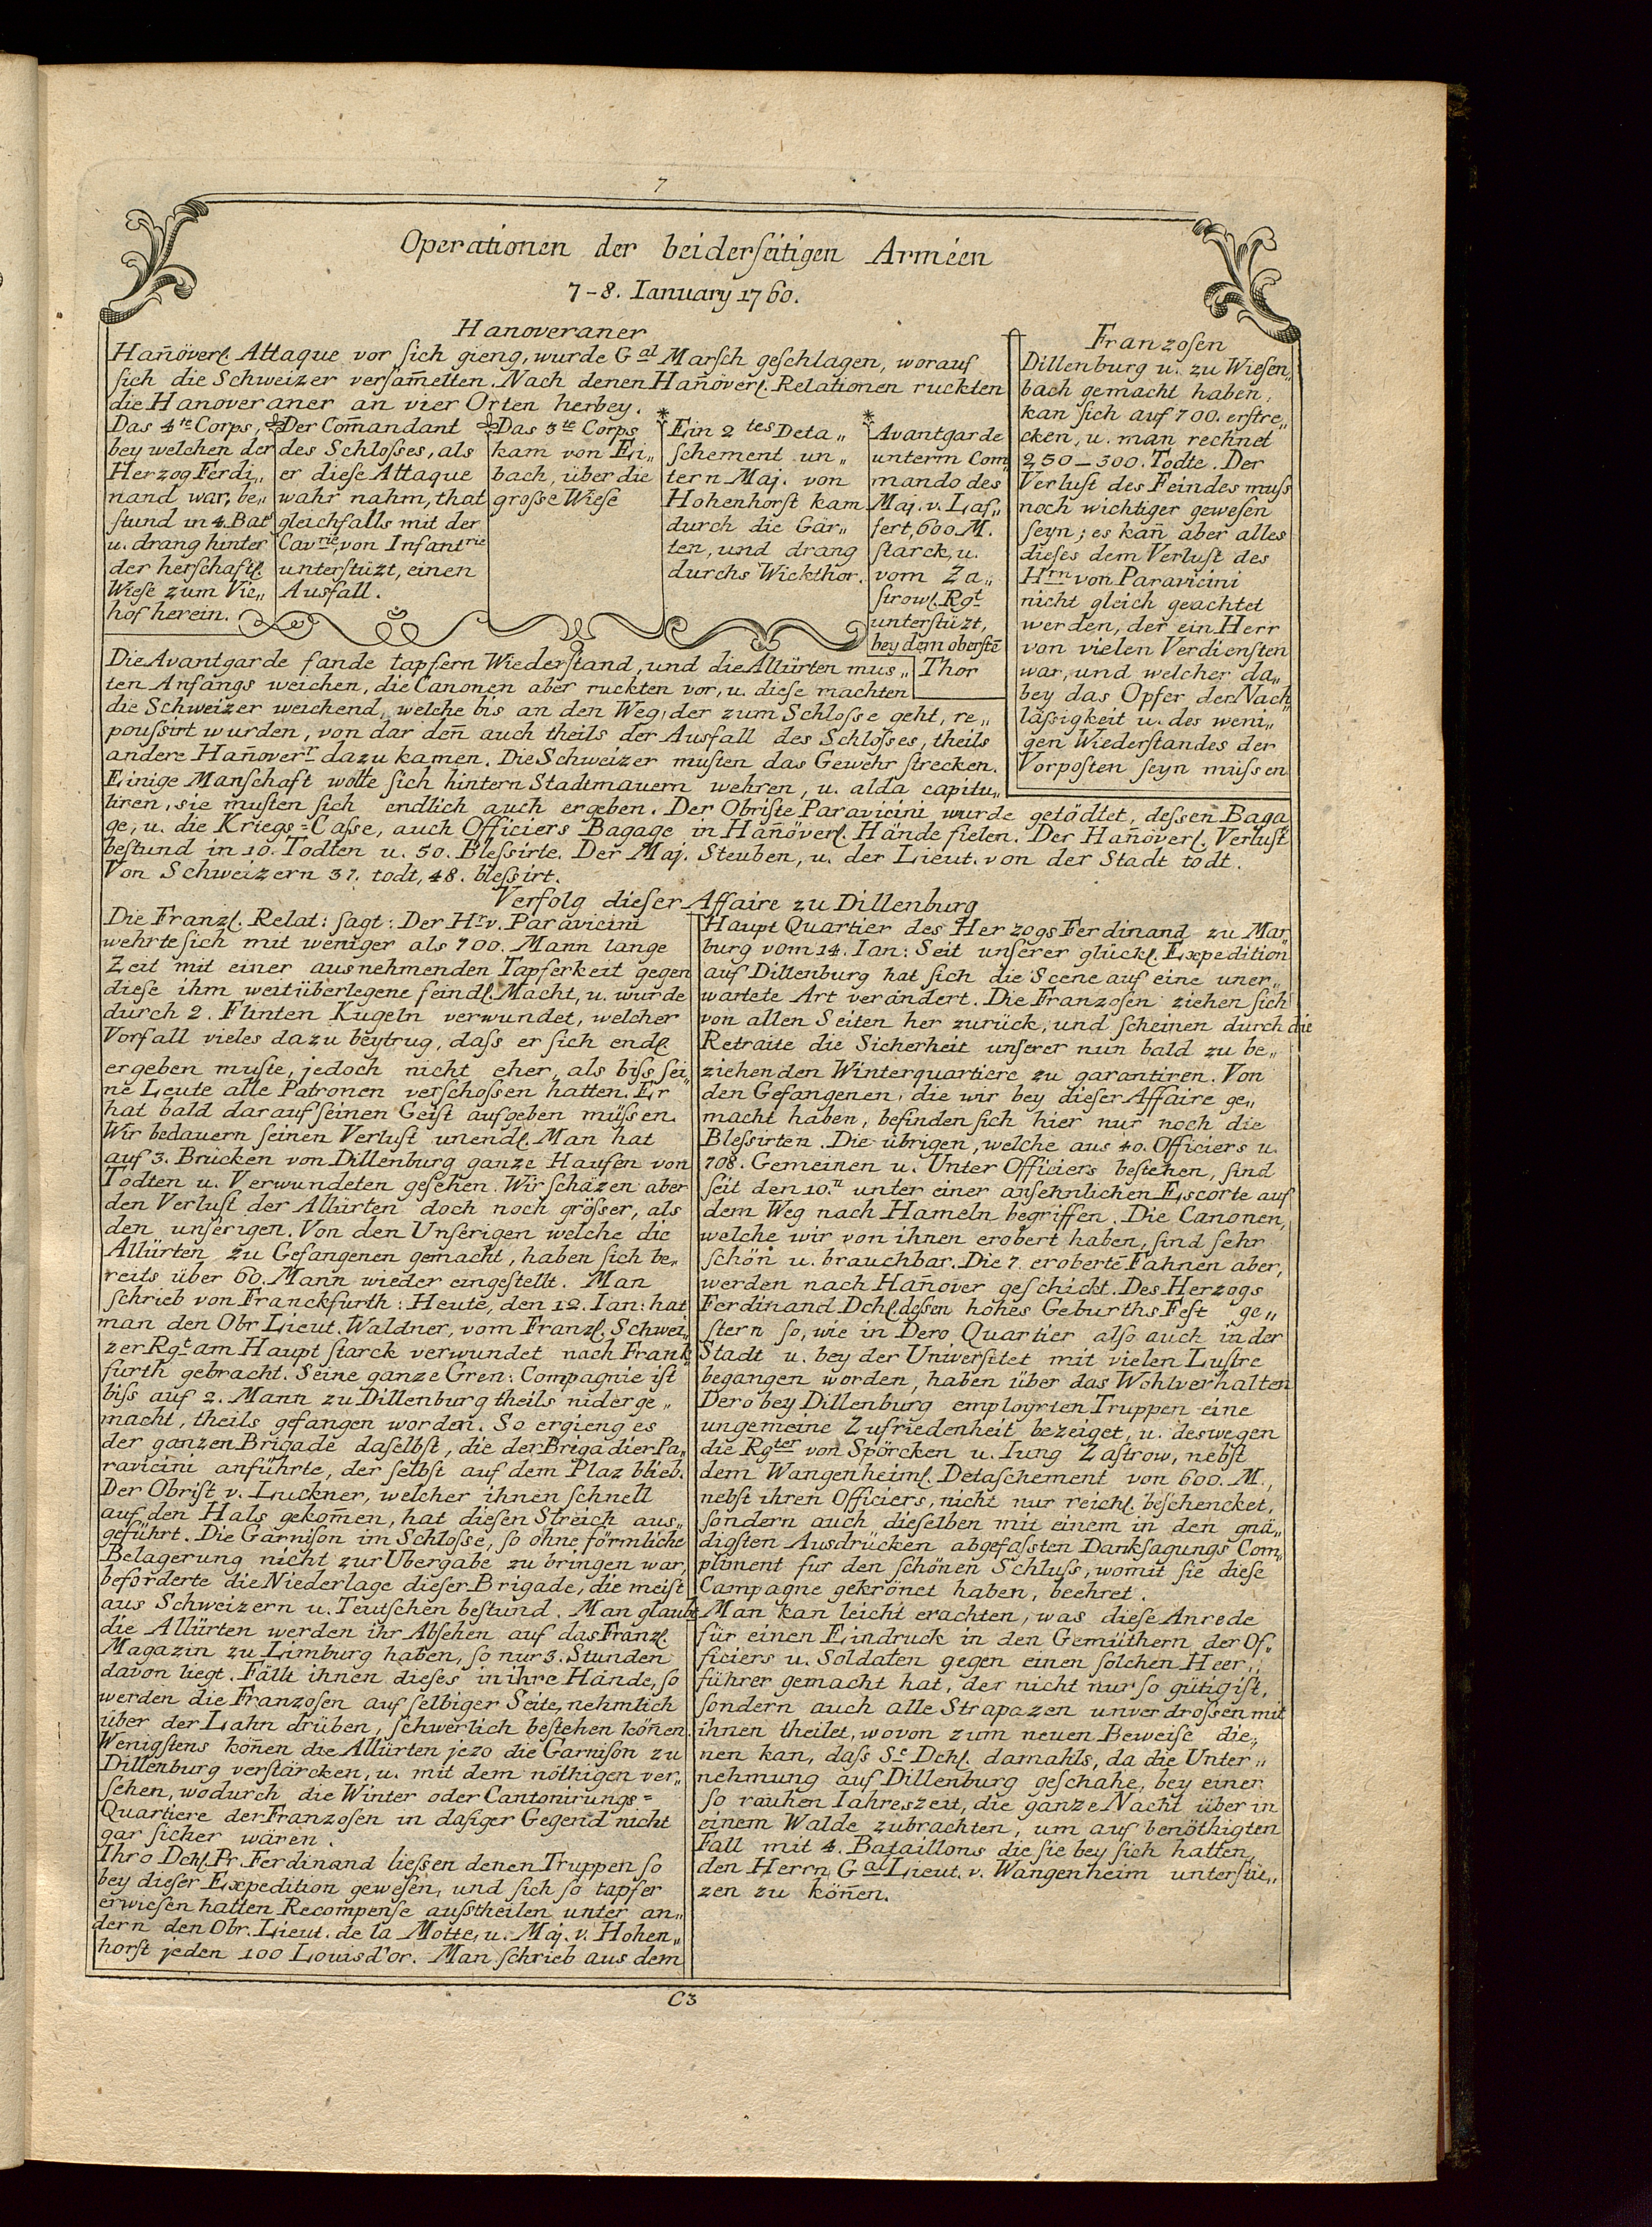 7
Operationen der beiderſeitigen Arméen
7-8. Ianuary 1760.
Hanoveraner
Han̄överl. Attaque vor ſich gieng, wurde Gal Marſch geſchlagen, worauf
ſich die Schweizer verſam̄elten. Nach denen Han̄överl. Relationen ruckten
die Hanoveraner an vier Orten herbey.
Das 4te Corps,
bey welchen der
Herzog Ferdi„
nand war, be„
ſtund in 4. Bats
u. drang hinter
der herſchaftl.
Wieſe zum Vie„
hof herein.
Der Com̄andant
des Schloſses, als
er dieſe Attaque
wahr nahm, that
gleichfalls mit der
Cavrie, von Infantrie
unterſtüzt, einen
Ausfall.
Das 3te Corps
kam von Ei„
bach, über die
groſse Wieſe
Ein 2tes Deta„
ſchement un„
tern Maj. von
Hohenhorſt kam
durch die Gär„
ten, und drang
durchs Wickthor.
Avantgarde
unterm Com„
mando des
Maj. v. Laf„
fert, 600 M.
ſtarck, u.
vom Za„
ſtrowl. Rgt
unterſtüzt,
bey dem oberſtē
Thor
Die Avantgarde fande tapfern Wiederſtand, und die Allürten mus„
ten Anfangs weichen, die Canonen aber ruckten vor, u. dieſe machten
die Schweizer weichend, welche bis an den Weg, der zum Schloſse geht, re„
pouſsirt wurden, von dar den̄ auch theils der Ausfall des Schloſses, theils
andere Han̄overr dazu kamen. Die Schweizer muſten das Gewehr ſtrecken.
Einige Manſchaft wolte ſich hintern Stadtmauern wehren, u. alda capitu„
liren, sie muſten ſich endlich auch ergeben. Der Obriſte Paravicini wurde getödtet, deſsen Baga
ge, u. die Kriegs=Caſse, auch Officiers Bagage in Han̄överl. Hände fielen. Der Han̄överl. Verluſt
beſtund in 10. Todten u. 50. Bleſsirte. Der Maj. Steuben, u. der Lieut. von der Stadt todt.
Von Schweizern 37. todt, 48. bleſsirt.
Franzoſen
Dillenburg u. zu Wieſen„
bach gemacht haben,
kan ſich auf 700. erſtre„
cken, u. man rechnet
250-300. Todte. Der
Verluſt des Feindes muſs
noch wichtiger geweſen
ſeyn; es kan̄ aber alles
dieſes dem Verluſt des
Hrn von Paravicini
nicht gleich geachtet
werden, der ein Herr
von vielen Verdienſten
war, und welcher da„
bey das Opfer der Nach„
läſsigkeit u. des weni„
gen Wiederſtandes der
Vorpoſten ſeyn müſsen
Verfolg dieſer Affaire zu Dillenburg
Die Franzl. Relat: ſagt: Der Hr v. Paravicini
wehrte ſich mit weniger als 700. Mann lange
Zeit mit einer ausnehmenden Tapferkeit gegen
dieſe ihm weit überlegene feindl. Macht, u. wurde
durch 2. Flinten Kugeln verwundet, welcher
Vorfall vieles dazu beytrug, daſs er ſich endl.
ergeben muſte, jedoch nicht eher, als biſs ſei„
ne Leute alle Patronen verſchoſsen hatten. Er
hat bald darauf ſeinen Geiſt aufgeben müſsen.
Wir bedauern ſeinen Verluſt unendl. Man hat
auf 3. Brücken von Dillenburg ganze Haufen von
Todten u. Verwundeten geſehen. Wir ſchäzen aber
den Verluſt der Allürten doch noch gröſser, als
den unſerigen. Von den Unſerigen welche die
Allürten zu Gefangenen gemacht, haben ſich be„
reits über 60. Mann wieder eingeſtellt. Man
ſchrieb von Franckfurth: Heute, den 12. Ian: hat
man den Obr Lieut. Waldner, vom Franzl. Schwei„
zer Rgt am Haupt ſtarck verwundet nach Frank„
furth gebracht. Seine ganze Gren: Compagnie iſt
biſs auf 2. Mann zu Dillenburg theils niderge„
macht, theils gefangen worden. So ergieng es
der ganzen Brigade daſelbſt, die der Brigadier Pa„
ravicini anführte, der ſelbſt auf dem Plaz blieb.
Der Obriſt v. Luckner, welcher ihnen ſchnell
auf den Hals gekom̄en, hat dieſen Streich aus„
geführt. Die Garniſon im Schloſse, ſo ohne förmliche
Belagerung nicht zur Ubergabe zu bringen war,
beforderte die Niederlage dieſer Brigade, die meiſt
aus Schweizern u. Teutſchen beſtund. Man glaubt
die Allürten werden ihr Abſehen auf das Franzl.
Magazin zu Limburg haben, ſo nur 3. Stunden
davon liegt. Fällt ihnen dieſes in ihre Hände, ſo
werden die Franzoſen auf ſelbiger Seite, nehmlich
über der Lahn drüben, ſchwerlich beſtehen kön̄en.
Wenigſtens kön̄en die Allürten jezo die Garniſon zu
Dillenburg verſtärcken, u. mit dem nöthigen ver„
ſehen, wodurch die Winter oder Cantonirungs=
Quartiere der Franzoſen in daſiger Gegend nicht
gar ſicher wären.
Ihro Dchl. Pr. Ferdinand lieſsen denen Truppen ſo
bey dieſer Expedition geweſen, und ſich ſo tapfer
erwieſen hatten Recompenſe auſstheilen unter an„
dern den Obr. Lieut. de la Motte, u. Maj. v. Hohen„
horſt jeden 100 Louisd'or. Man ſchrieb aus dem
Haupt Quartier des Herzogs Ferdinand zu Mar„
burg vom 14. Ian: Seit unſerer glückl. Expedition
auf Dillenburg hat ſich die Scene auf eine uner„
wartete Art verändert. Die Franzoſen ziehen ſich
von allen Seiten her zurück, und ſcheinen durch die
Retraite die Sicherheit unſerer nun bald zu be„
ziehenden Winterquartiere zu garantiren. Von
den Gefangenen, die wir bey dieſer Affaire ge„
macht haben, befinden ſich hier nur noch die
Bleſsirten. Die übrigen, welche aus 40. Officiers u.
708. Gemeinen u. Unter Officiers beſtehen, ſind
ſeit den 10.n unter einer anſehnlichen Escorte auf
dem Weg nach Hameln begriffen. Die Canonen,
welche wir von ihnen erobert haben, ſind ſehr
ſchön u. brauchbar. Die 7. eroberte Fahnen aber,
werden nach Han̄over geſchickt. Des Herzogs
Ferdinand Dchl. deſsen hohes Geburths Feſt ge„
ſtern ſo, wie in Dero Quartier alſo auch in der
Stadt u. bey der Univerſitet mit vielen Luſtre
begangen worden, haben über das Wohlverhalten
Dero bey Dillenburg employrten Truppen eine
ungemeine Zufriedenheit bezeiget, u. deswegen
die Rgter von Spörcken u. Iung Zaſtrow, nebſt
dem Wangenheiml. Detaſchement von 600. M.,
nebſt ihren Officiers, nicht nur reichl. beſchencket,
ſondern auch dieſelben mit einem in den gnä„
digſten Ausdrücken abgefaſsten Dankſagungs Com„
pliment fur den ſchönen Schluſs, womit ſie dieſe
Campagne gekrönet haben, beehret.
Man kan leicht erachten, was dieſe Anrede
für einen Eindruck in den Gemüthern der Of„
ficiers u. Soldaten gegen einen ſolchen Heer„
führer gemacht hat, der nicht nur ſo gütig iſt,
ſondern auch alle Strapazen unverdroſsen mit
ihnen theilet, wovon zum neuen Beweiſe die„
nen kan, daſs Se Dchl. damahls, da die Unter„
nehmung auf Dillenburg geſchahe, bey einer
ſo rauhen Iahreszeit, die ganze Nacht über in
einem Walde zubrachten, um auf benöthigten
Fall mit 4. Bataillons die ſie bey ſich hatten,
den Herrn Gal Lieut. v. Wangenheim unterſtü„
zen zu kön̄en.
C3